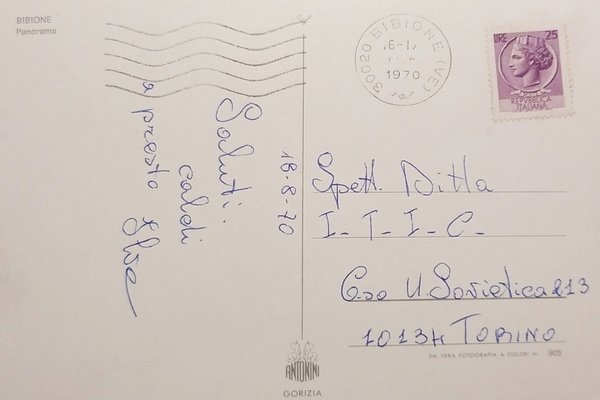 BIBIONE
Panorama
30020 BIBIONE (VE)
1970
LIRE 25
REPVBBLICA
ITALIANA
Saluti.
caldi
a presto
18-8-70
Spett. Ditta
I-T-I-C-
C.so U. Sovietica 213
10134 TORINO
DA VERA FOTOGRAFIA A COLORI Nr. 905
ANTONINI
GORIZIA